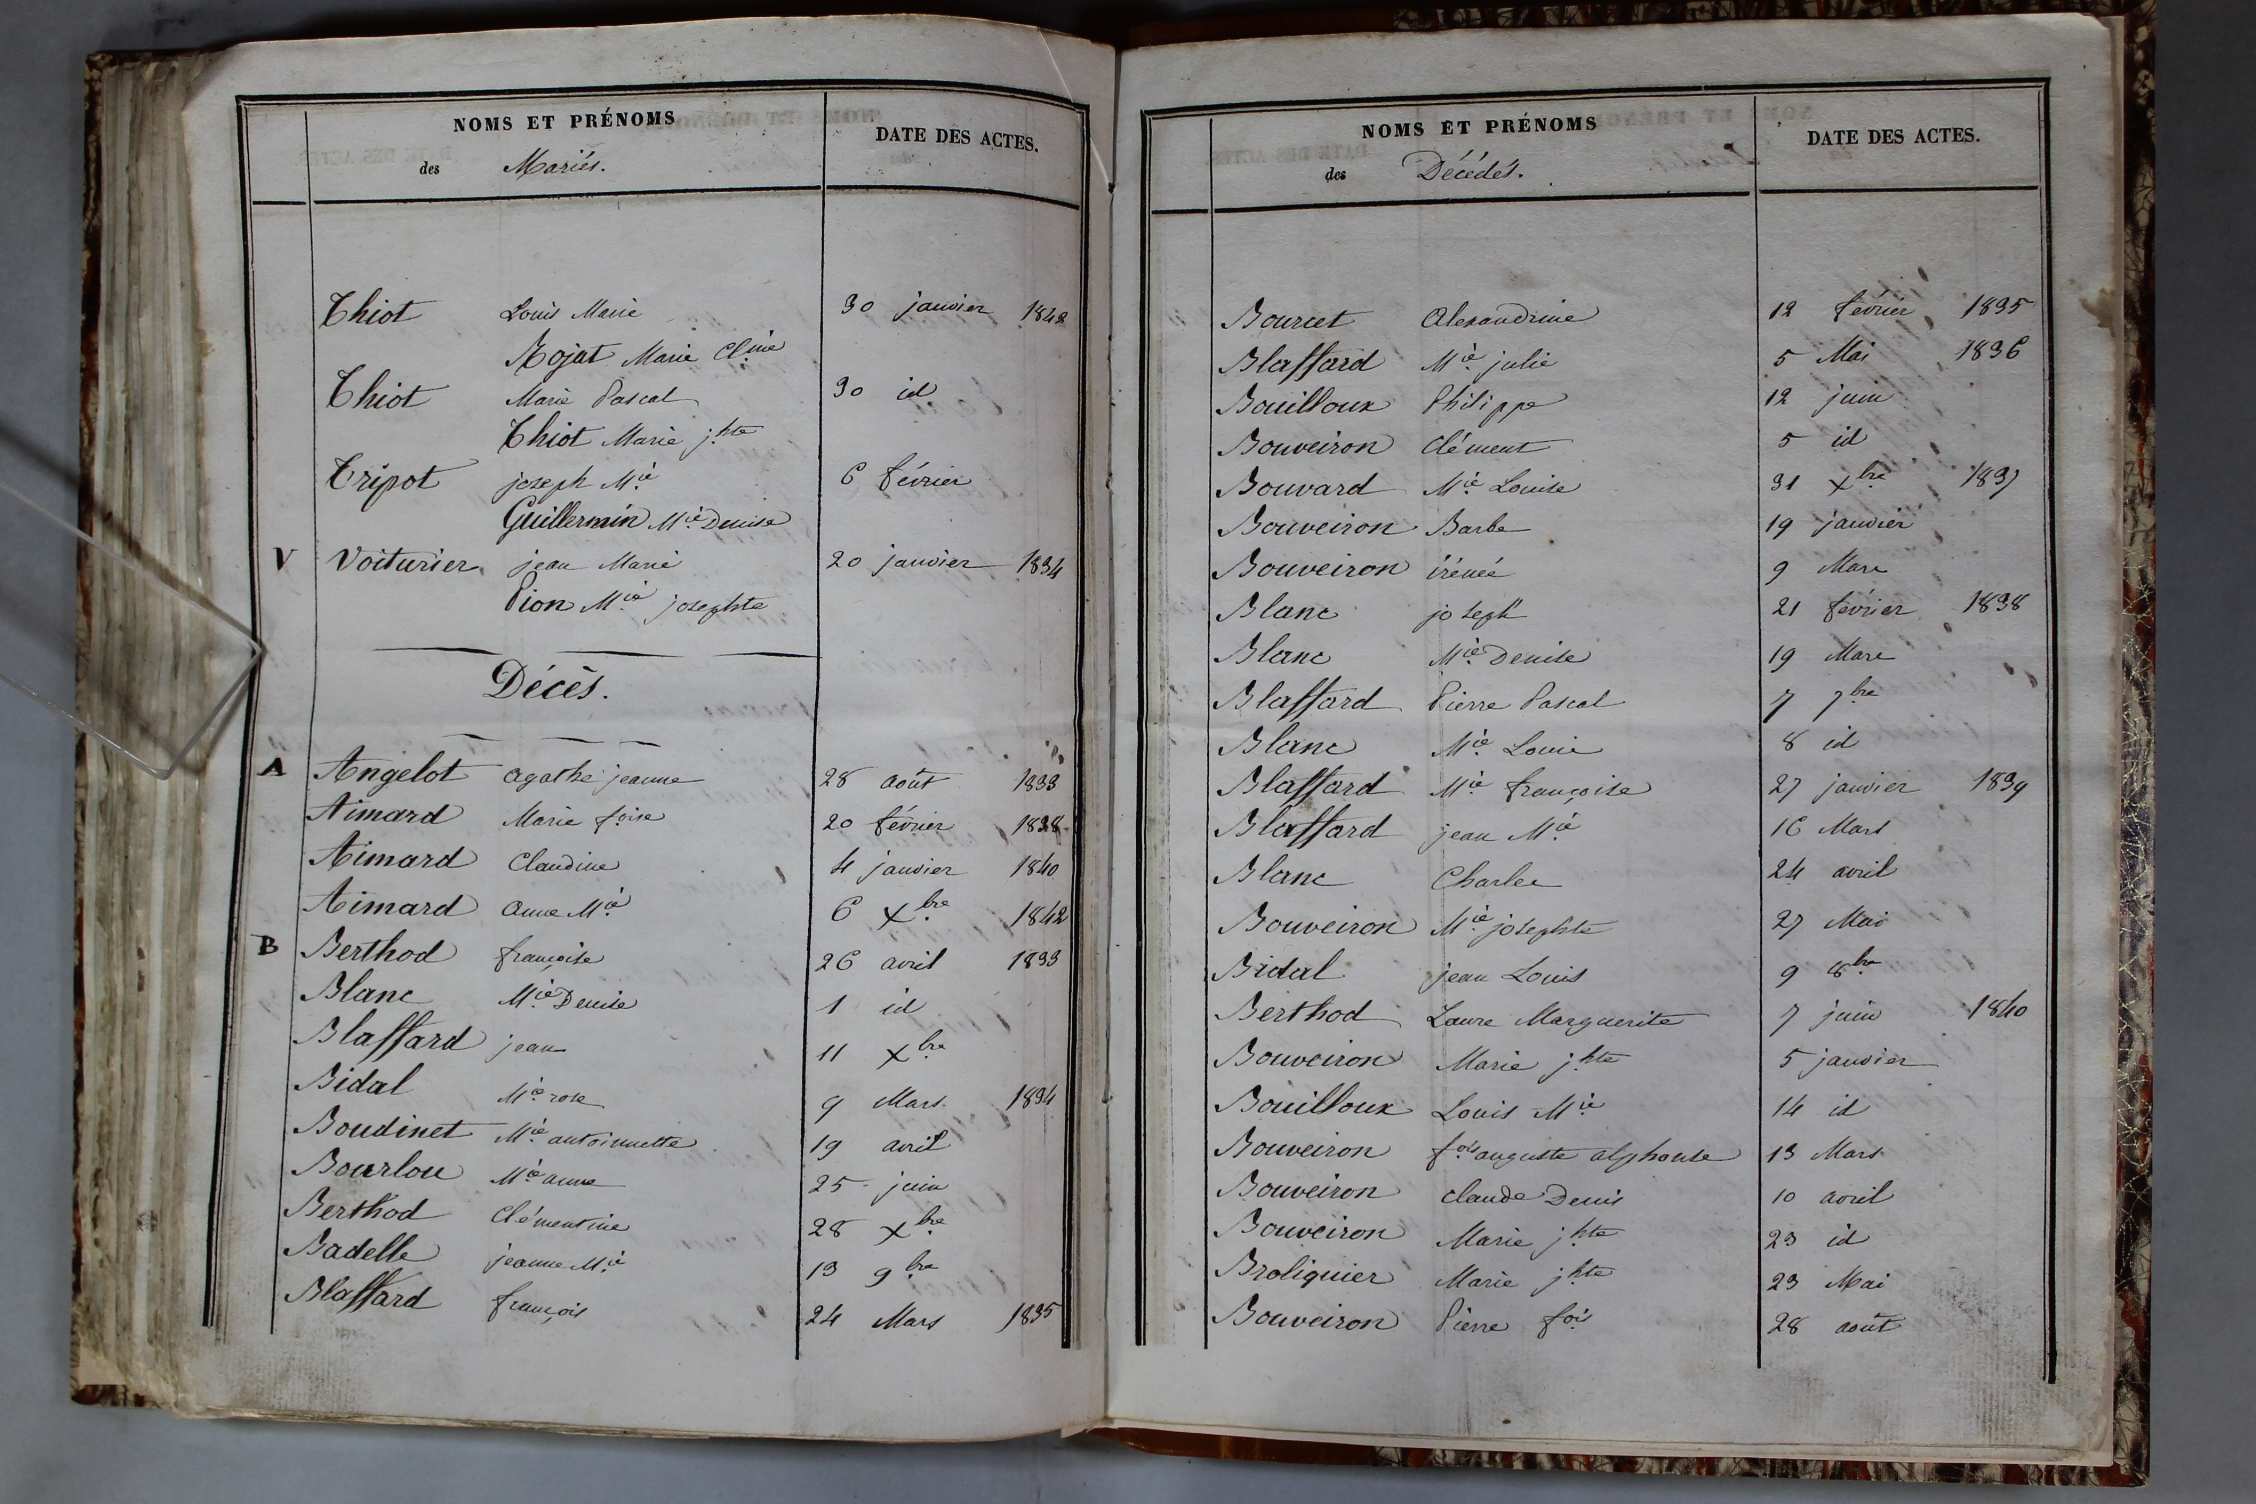 NOMS ET PRÉNOMS
des Mariés.
DATE DES ACTES.
Thiot Louis Marie 30 janvier 1842
Rojat Marie Cl.ine
Thiot Marie Pascal 30 id
Thiot Marie j.hte
Tripot joseph M.ie 6 février
Guillermin M.ie Denise
V Voiturier jean Marie 20 janvier 1834
Pion M.ie josephte
Décès.
A Angelot agathe jeanne 28 août 1833
Aimard Marie f.oise 20 février 1838
Aimard Claudine 4 janvier 1840
Aimard anne M.ie 6 Xbre 1842
B Berthod françoise 26 avril 1833
Blanc M.ie Denise 1 id
Blaffard jean 11 Xbre
Bidal M.ie rose 9 Mars 1834
Boudinet M.ie antoinette 19 avril
Bourlou M.ie anne 25 juin
Berthod Clémentine 28 Xbre
Badelle jeanne M.ie 13 9bre
Blaffard françois 24 Mars 1835
NOMS ET PRÉNOMS
des Décédés.
DATE DES ACTES.
Bourcet Alexandrine 12 février 1835
Blaffard M.ie julie 5 Mai 1836
Bouilloux Philippe 12 juin
Bouveiron Clément 5 id
Bouvard M.ie Louise 31 Xbre 1837
Bouveiron Barbe 19 janvier
Bouveiron irénée 9 Mars
Blanc joseph 21 février 1838
Blanc M.ie Denise 19 Mars
Blaffard Pierre Pascal 7 7bre
Blanc M.ie Louise 8 id
Blaffard M.ie françoise 27 janvier 1839
Blaffard jean M.ie 16 Mars
Blanc Charles 24 avril
Bouveiron M.ie josephte 27 Mai
Bidal jean Louis 9 8bre
Berthod Laure Marguerite 7 juin 1840
Bouveiron Marie j.hte 5 janvier
Bouilloux Louis M.ie 14 id
Bouveiron f.ois auguste alphonse 13 Mars
Bouveiron claude Denis 10 avril
Bouveiron Marie j.hte 23 id
Broliquier Marie j.hte 23 Mai
Bouveiron Pierre f.ois 28 août